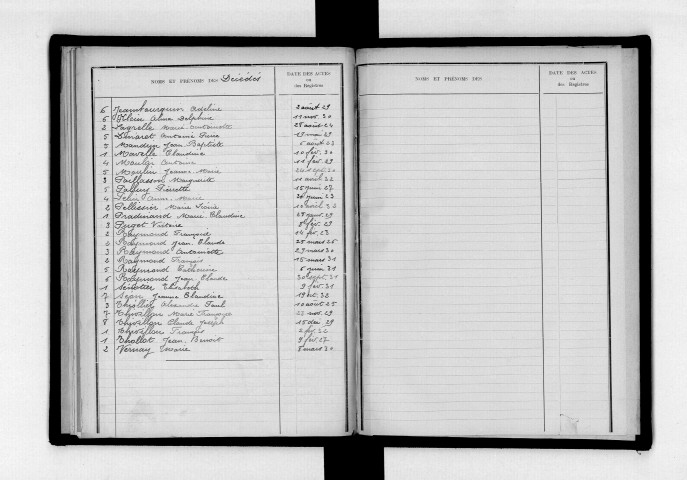 NOMS ET PRÉNOMS DES Décédés DATE DES ACTES
ou
des Registres
6 Jeambourquin Adeline 2 août 29
6 Klein Alma Delphine 11 nov. 30
2 Lagrelle Marie Antoinette 28 août 24
5 Antoine Pierre 19 mai 29
Jean Baptiste 5 août 23
1 Mavelle Claudine 10 fév. 30
4 Antoine 11 fév. 29
5 Moulin Jeanne Marie 24 sept. 30
3 Paillasson Marguerite 11 avril 32
5 Pierrette 15 juin 27
4 Marie juin 23
2 Pellissier Marie avril 32
1 Pradinaud Marie Claudine 29
3 Puget Victoire 8 fév. 29
2 Raymond François 14 fév. 23
2 Raymond Jean Claude 25 mars 25
3 Raymond Antoinette 29 mars 30
2 Raymond François 15 mars 31
5 Raymond Catherine 6 31
6 Raymond Jean Claude 30 sept. 31
1 Elisabeth 9 fév. 31
7 Jeanne Claudine 19 32
3 Thollot Alexandre Paul 10 août 25
7 Thévillon Marie Françoise 22 nov. 29
8 Thévillon Claude Joseph 15 déc 29
1 Thévillon François 2 32
1 Thollot Jean Benoit 9 fév. 27
2 Vernay Marie 5 mars 30
NOMS ET PRÉNOMS DES DATE DES ACTES
ou
des Registres